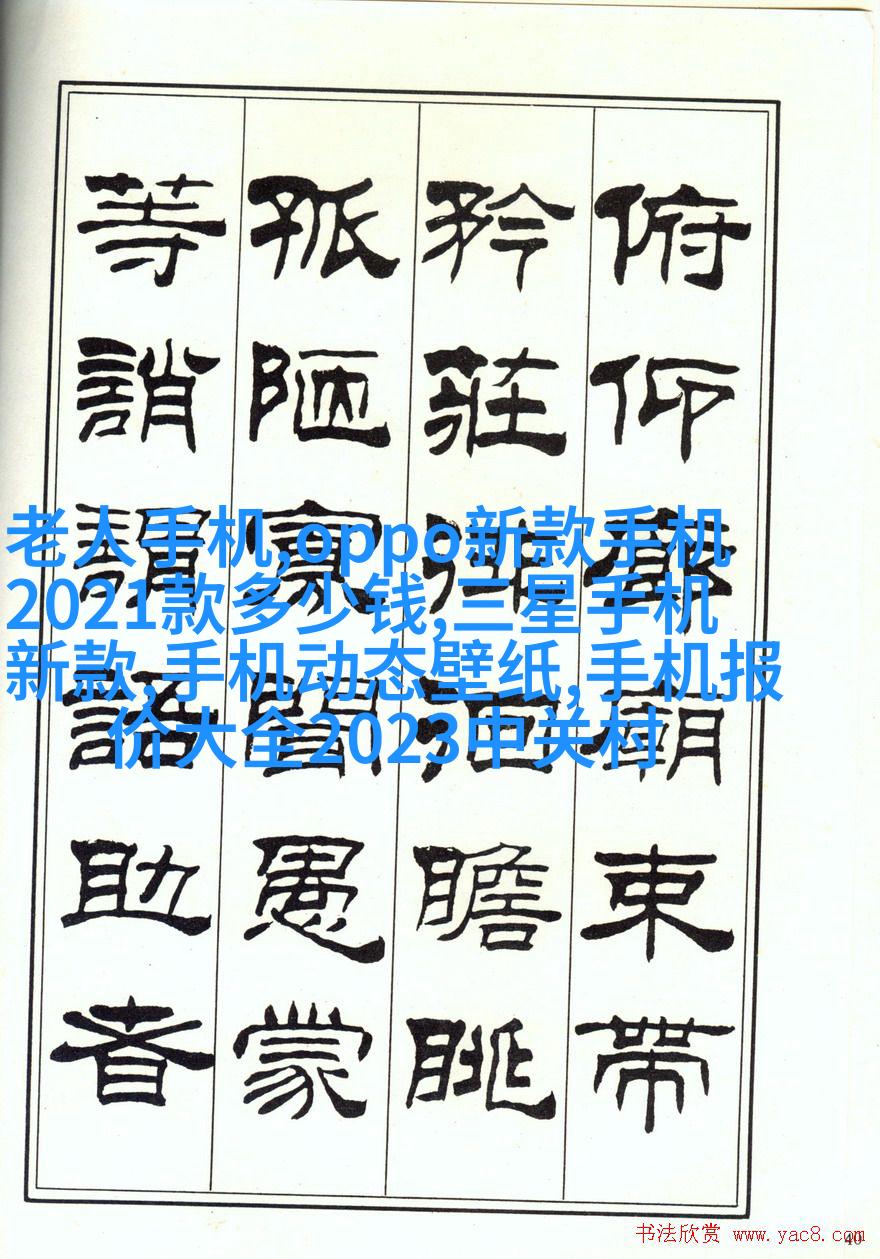 俯仰廟束帶
矜莊瞻眺
孤陋寡聞愚蒙
等誚謂語助者
老人手机,oppo新款手机
2021款多少钱,三星手机
新款,手机动态壁纸,手机报
价大全2023中关村
书法欣赏 www.yac8.com
40